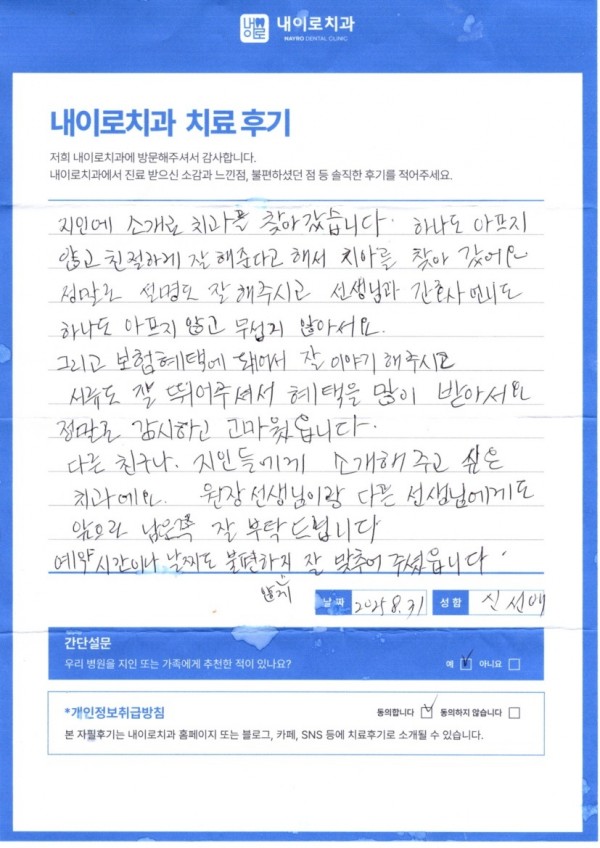 내이로치과
NAYRO DENTAL CLINIC
내이로치과 치료 후기
저희 내이로치과에 방문해주셔서 감사합니다.
내이로치과에서 진료 받으신 소감과 느낀점, 불편하셨던 점 등 솔직한 후기를 적어주세요.
지인에 소개로 치과를 찾아갔습니다. 하나도 아프지
않고 친절하게 잘 해준다고 해서 치아를 찾아 갔어요
정말로 설명도 잘 해주시고 선생님과 간호사 언니도
하나도 아프지 않고 무섭지 않아서요.
그리고 보험혜택에 돼어서 잘 이야기 해주시고
서류도 잘 뛰어주셔서 혜택을 많이 받아서요
정말로 감시하고 고마웠읍니다.
다른 친구나. 지인들에게 소개해 주고 싶은
치과에요. 원장선생님이랑 다른 선생님에게도
앞으라 남은쪽 잘 부탁드립니다
예약시간이나 날짜도 불편하지 잘 맞추어 주셨읍니다.
않게
날짜 2025 8. 31 성함 신선애
간단설문
우리 병원을 지인 또는 가족에게 추천한 적이 있나요? 예 아니요
*개인정보취급방침 동의합니다 동의하지 않습니다
본 자필후기는 내이로치과 홈페이지 또는 블로그, 카페, SNS 등에 치료후기로 소개될 수 있습니다.